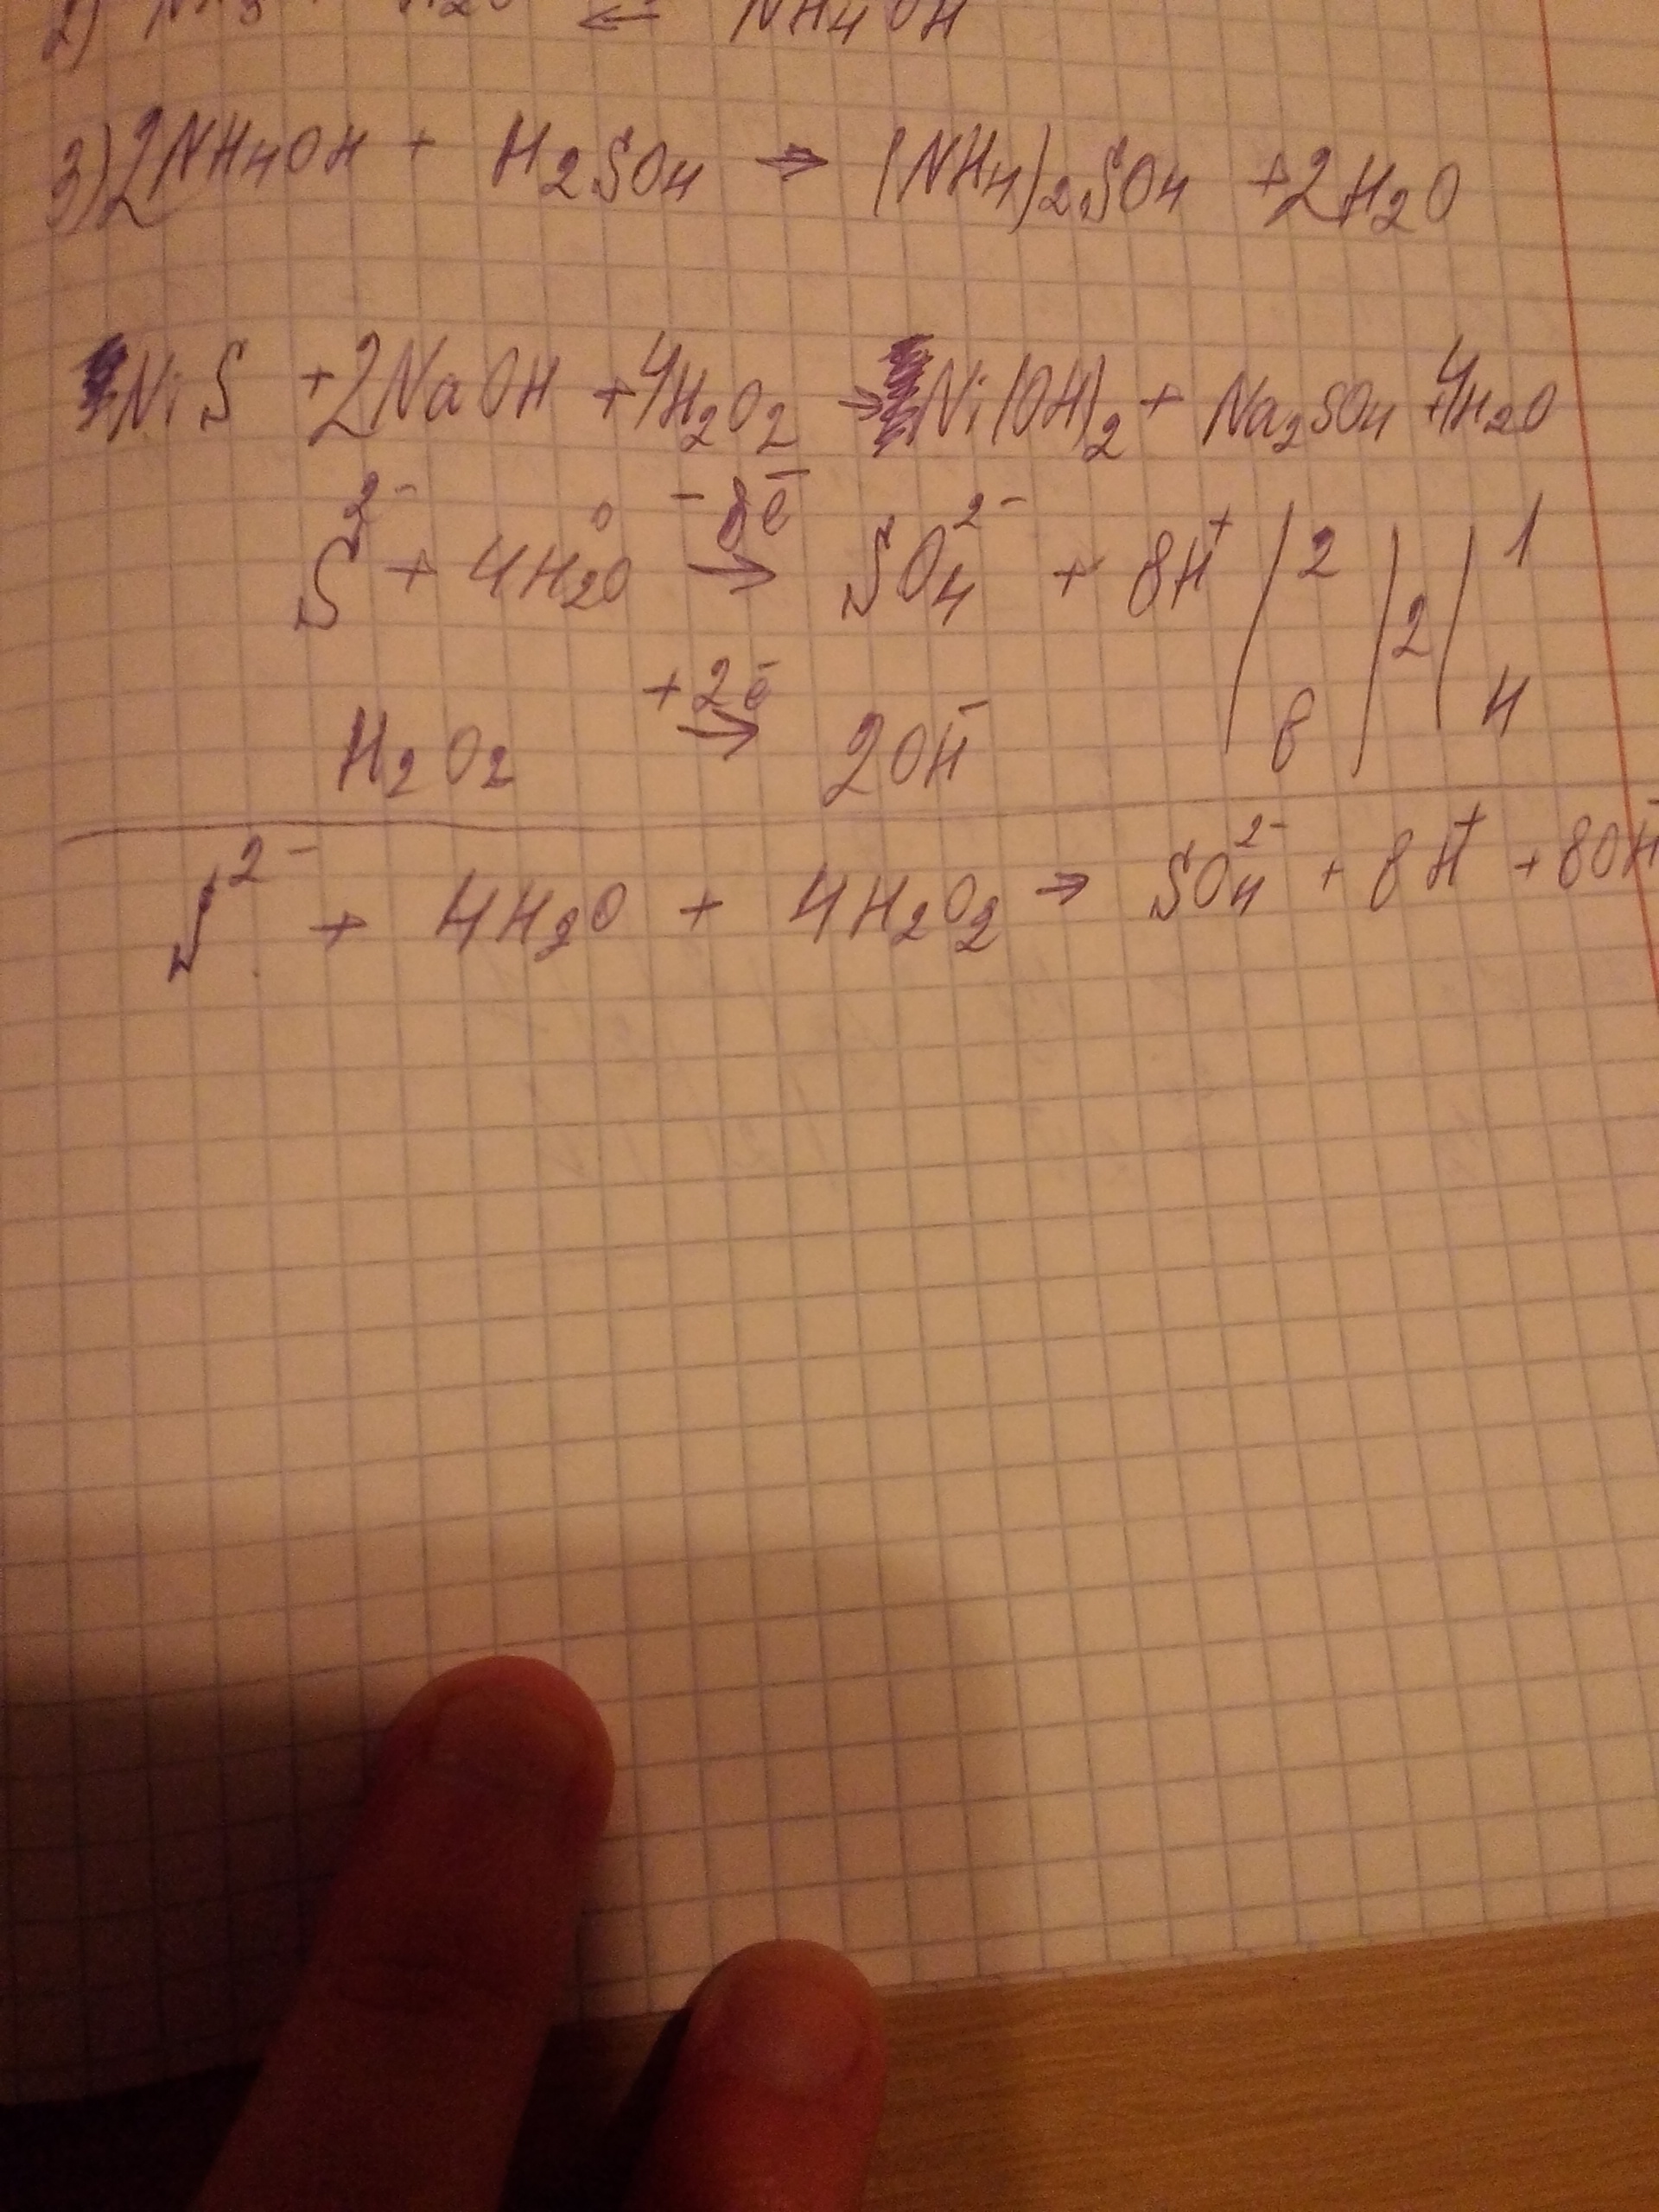 2) NH3 + H2O ⇐ NH4OH
3) 2NH4OH + H2SO4 → (NH4)2SO4 + 2H2O
NiS + 2NaOH + 4H2O2 → Ni(OH)2 + Na2SO4 + 4H2O
S²⁻ + 4H2O⁰ –8ē → SO4²⁻ + 8H⁺ | 2 | 2 | 1
H2O2 +2ē → 2OH⁻ | 8 | | 4
S²⁻ + 4H2O + 4H2O2 → SO4²⁻ + 8H⁺ + 8OH⁻